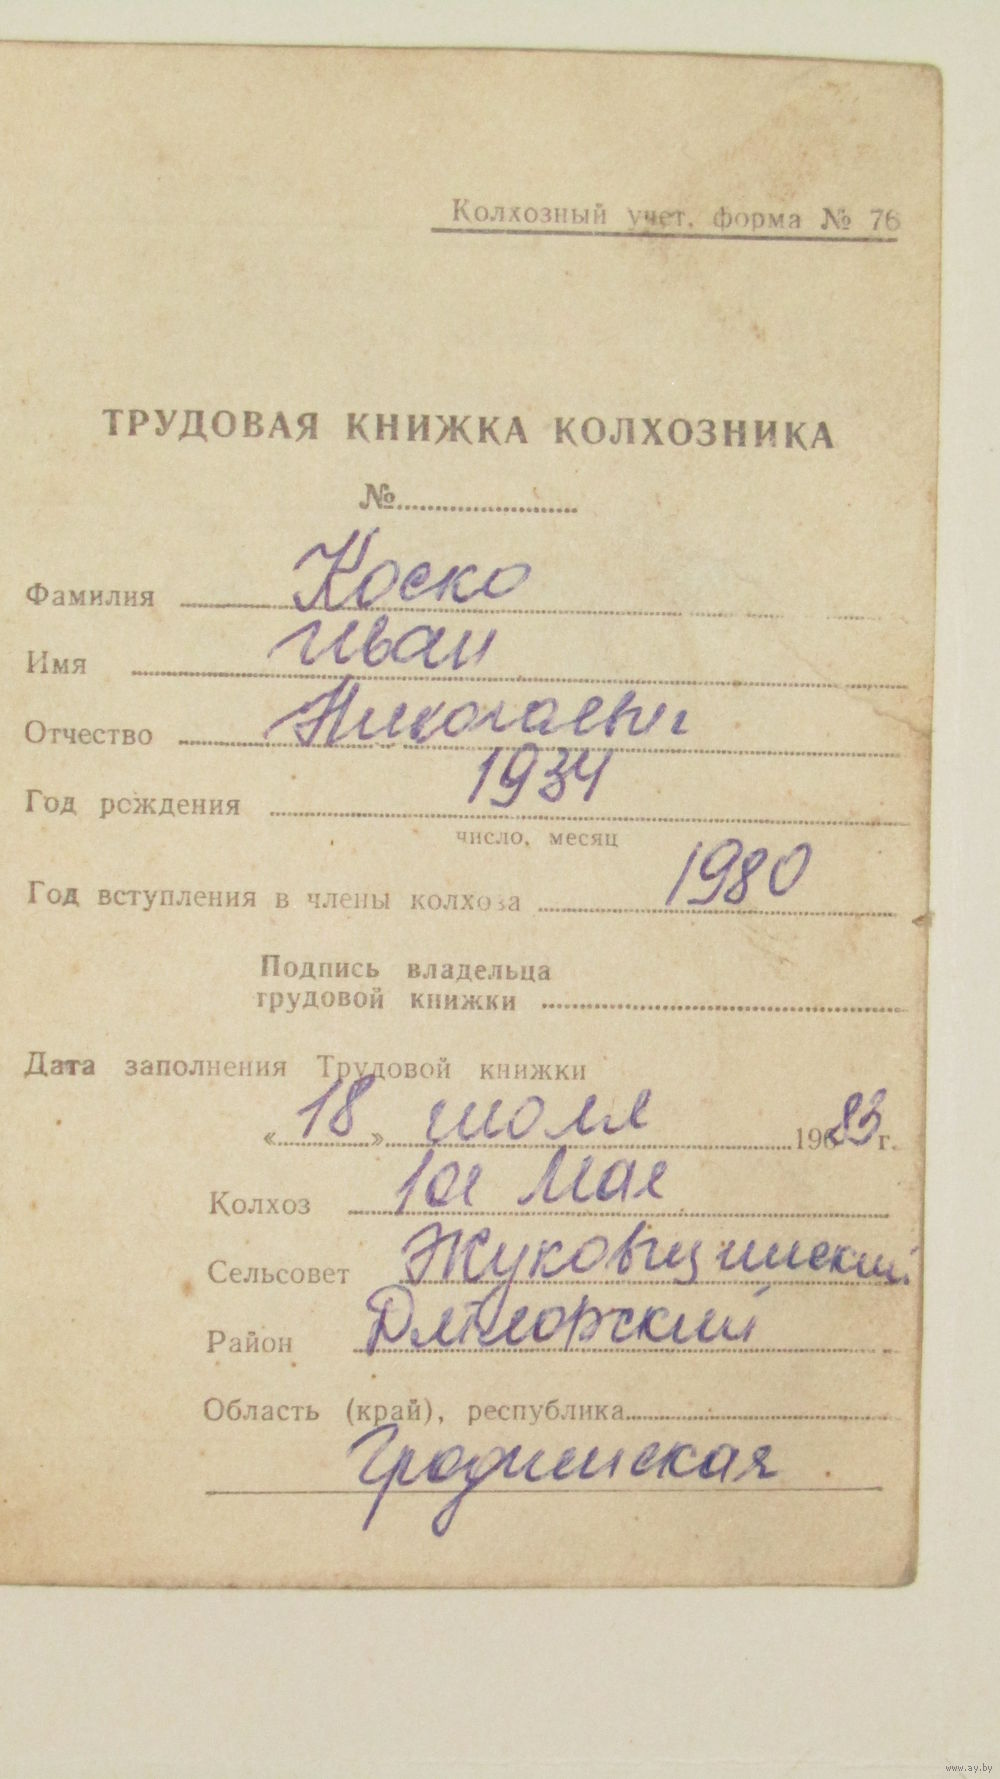 Колхозный учет. форма № 76
ТРУДОВАЯ КНИЖКА КОЛХОЗНИКА
№
Фамилия Коско
Имя Иван
Отчество Николаевич
Год рождения 1934
число, месяц
Год вступления в члены колхоза 1980
Подпись владельца
трудовой книжки
Дата заполнения Трудовой книжки
«18» июля 1983 г.
Колхоз 1ое Мая
Сельсовет Жуковщинский
Район Дятловский
Область (край), республика
Гродненская
www.ay.by